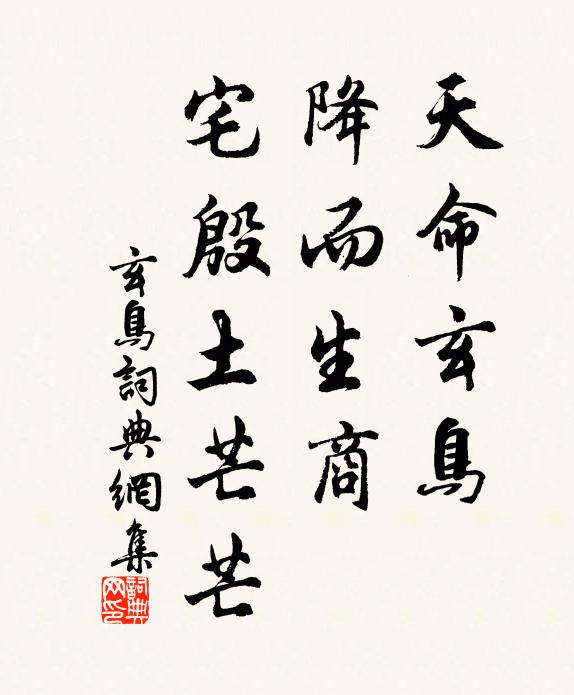 天命玄鳥
降而生商
宅殷土芒芒
玄鳥詞典網集
詞典网印